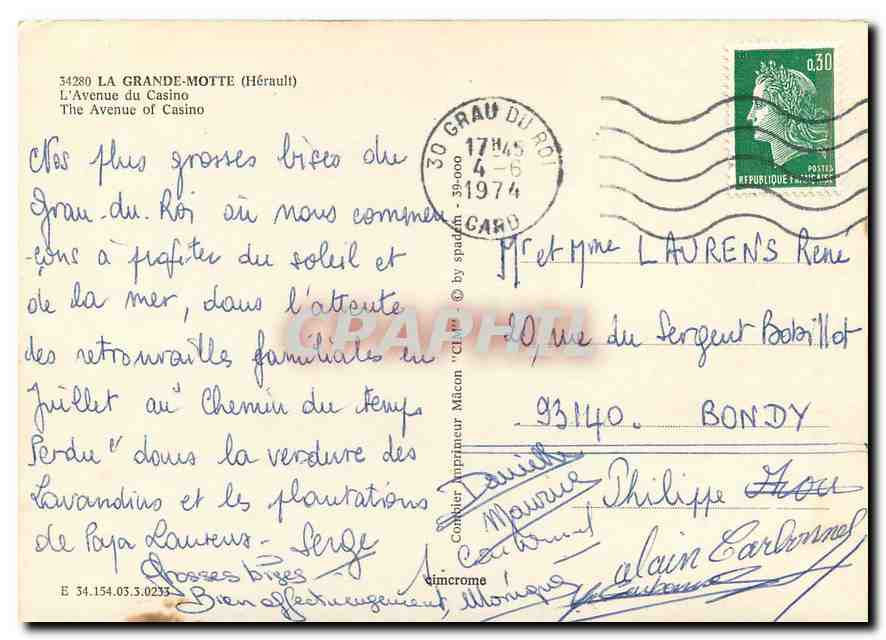 34280 LA GRANDE-MOTTE (Hérault)
L'Avenue du Casino
The Avenue of Casino
Nos plus grosses bises du
Grau-du-Roi où nous commen
-çons à profiter du soleil et
de la mer, dans l'attente
des retrouvailles familiales en
Juillet au "Chemin du temps
Perdu" dans la verdure des
Lavandins et les plantations
de Papa Laurens - Serge
Grosses bises
Bien affectueusement, Monique
E 34.154.03.3.0233
cimcrome
Combier Imprimeur Mâcon "CIM" © by spadem - 39-000
30 GRAU DU ROI
17H45
4-6
1974
GARD
0,30
POSTES
REPUBLIQUE FRANÇAISE
Mr et Mme LAURENS René
20, rue du Sergent Bobillot
93140. BONDY
Danielle
Maurice
Carbonnel
Philippe
Alain Carbonnel
CPAPHIL